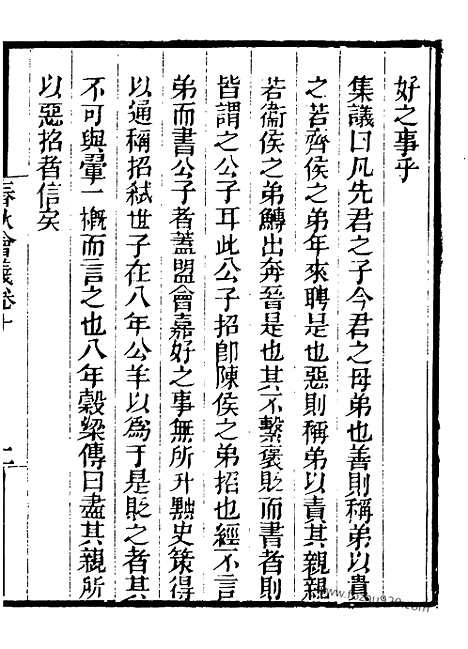 好之事乎
集議曰凡先君之子今君之母弟也善則稱弟以貴
之若齊侯之弟年來聘是也惡則稱弟以責其親親
若衞侯之弟鱄出奔晉是也其不繫褒貶而書者則
皆謂之公子耳此公子招卽陳侯之弟招也經不言
弟而書公子者蓋盟會嘉好之事無所升黜史策得
以通稱招弑世子在八年公羊以爲于是貶之者其
不可與翬一槪而言之也八年穀梁傳曰盡其親所
以惡招者信矣
春秋會義卷十
二